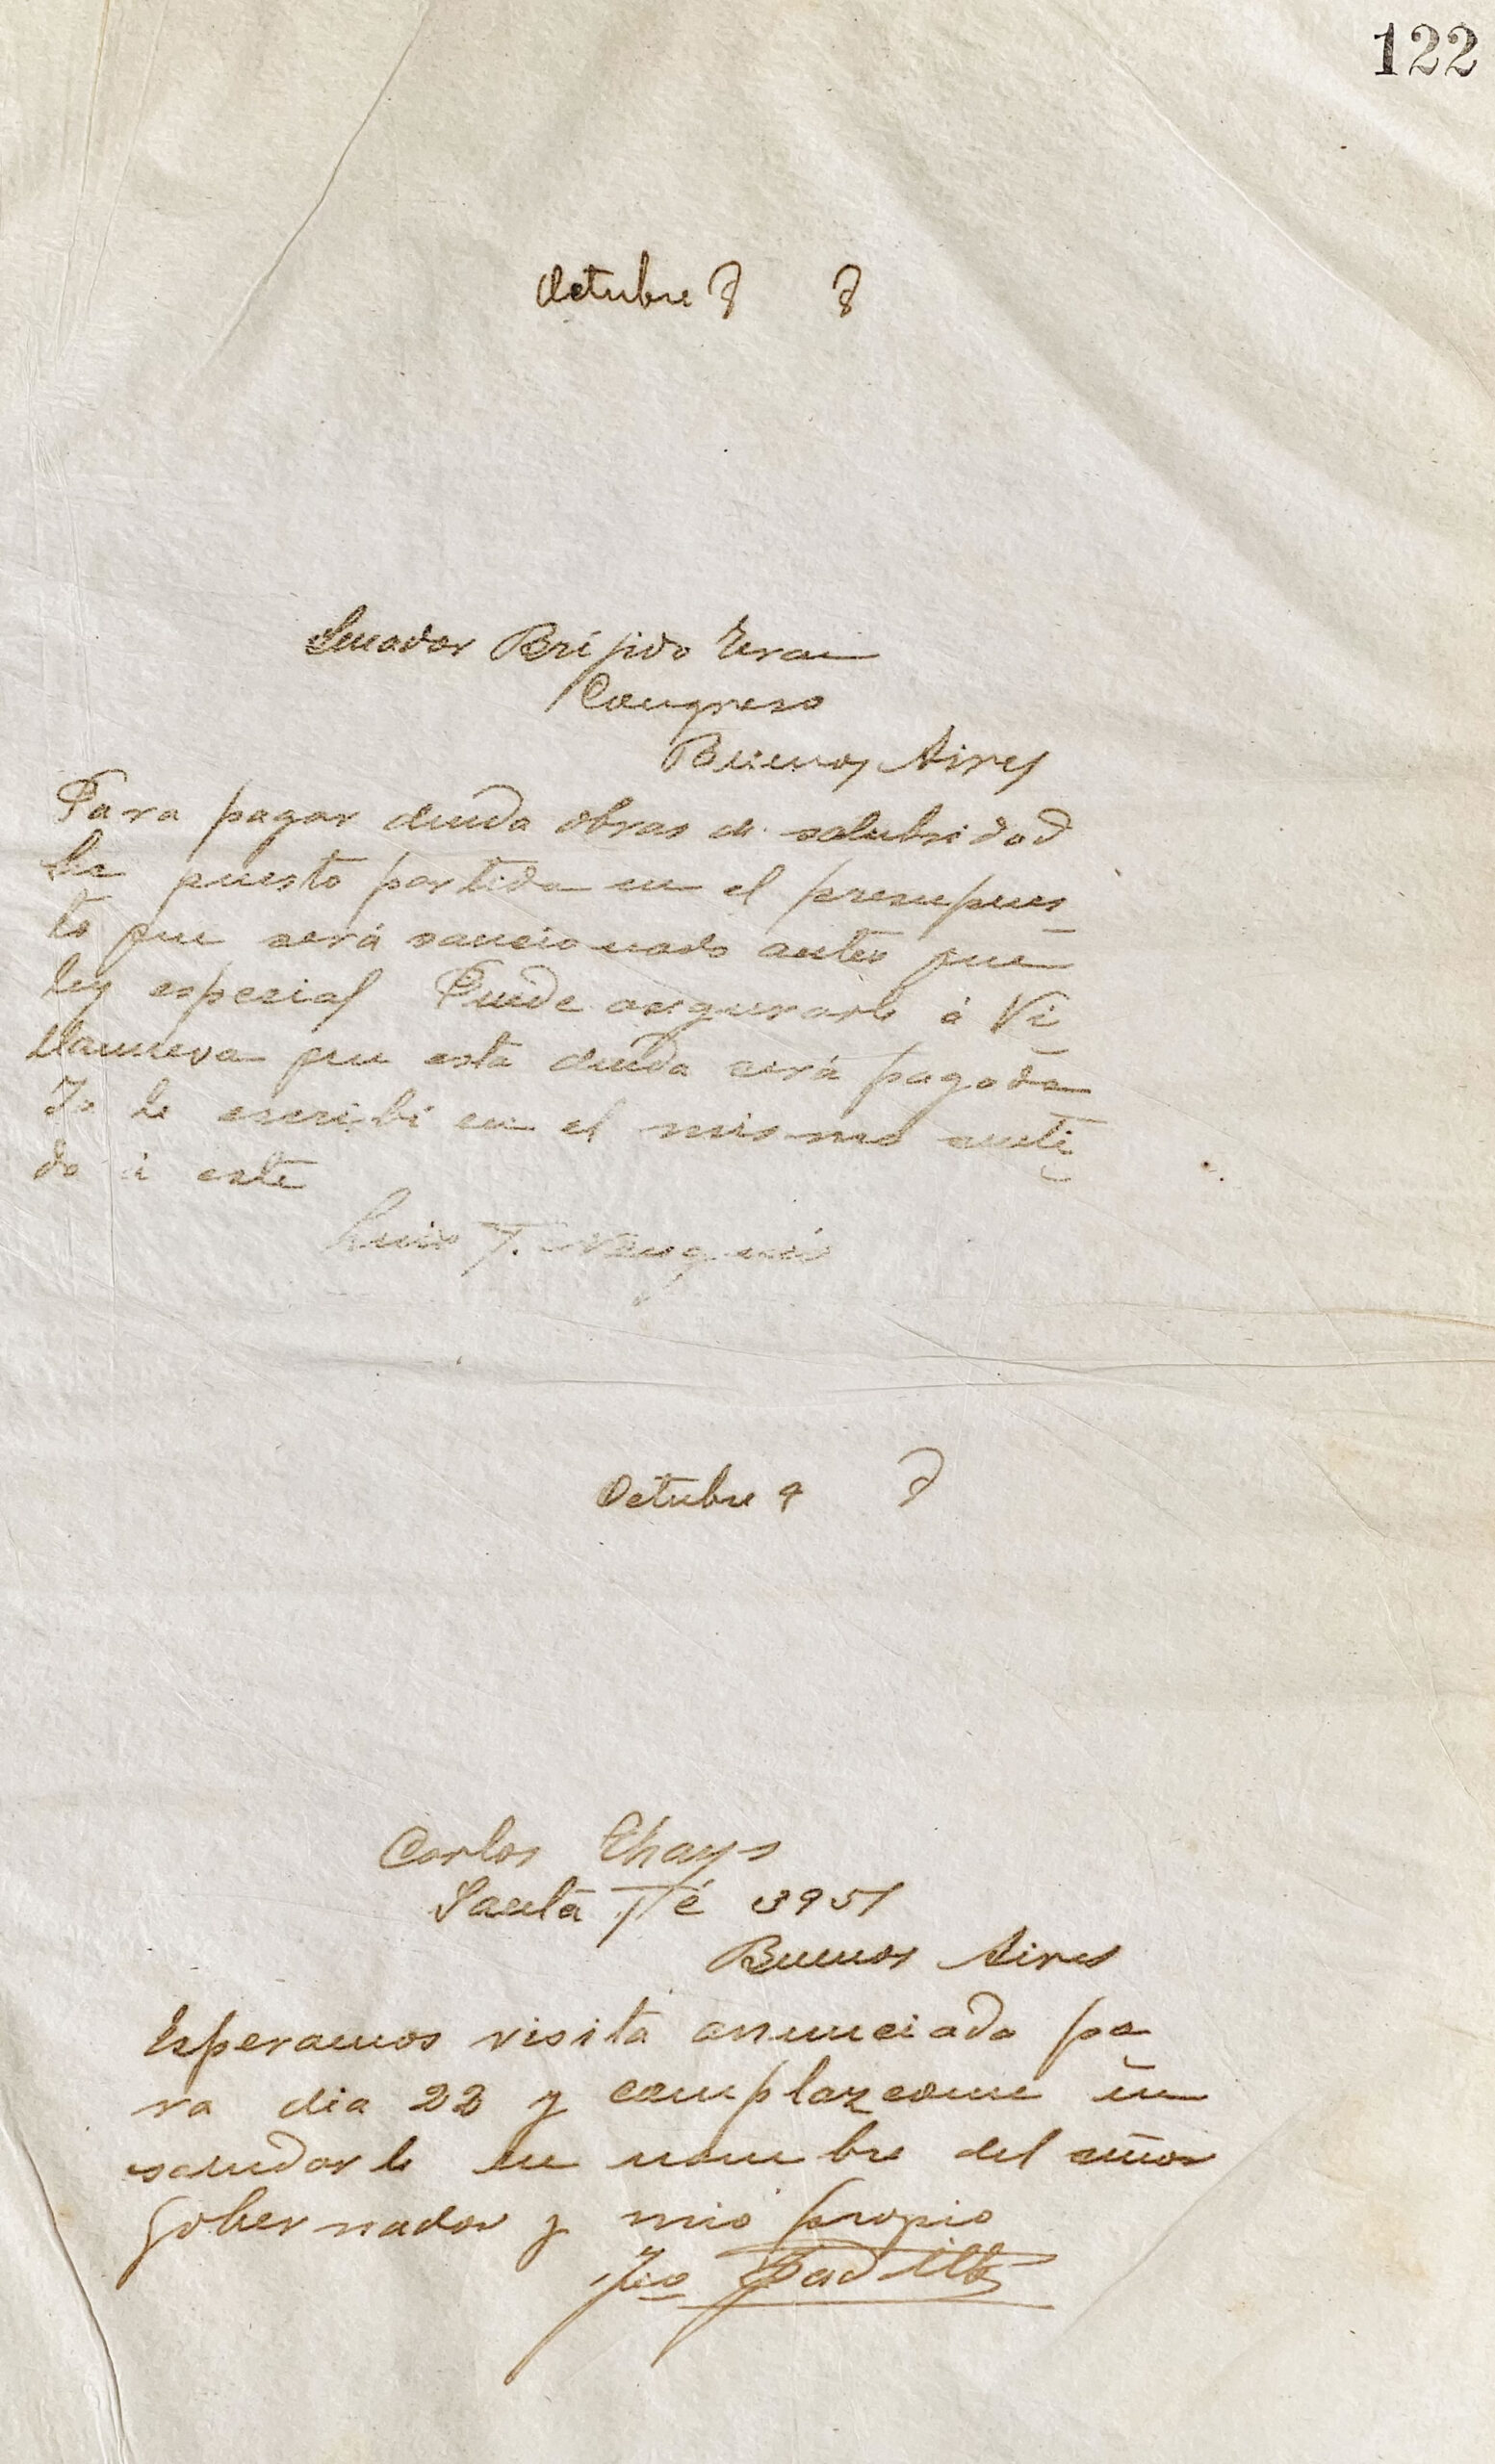 122
Octubre 8 8
Senador Brígido Teran
Congreso
Buenos Aires
Para pagar deuda obras de salubridad
he puesto partida en el presupues
to que será sancionado antes que
ley especial Puede asegurarle á Vi
llanueva que esta deuda será pagada
Yo le escribí en el mismo senti
do á este
Luis F. Nougués
Octubre 9
Carlos Thays
Santa Fé 3951
Buenos Aires
Esperamos visita anunciada pa
ra dia 22 y complazcome en
saludarle en nombre del señor
Gobernador y mio propio
Padilla